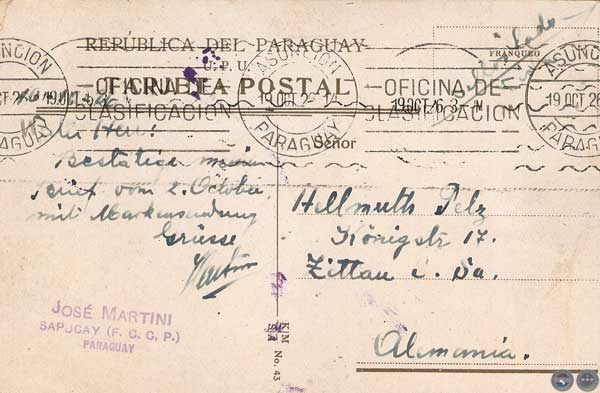 REPÚBLICA DEL PARAGUAY
U. P. U.
TARJETA POSTAL
FRANQUEO
ASUNCION
PARAGUAY
OFICINA DE
CLASIFICACION
ASUNCION
19 OCT 26
PARAGUAY
OFICINA DE
CLASIFICACION
ASUNCION
19 OCT 26
PARAGUAY
Señor
Herr!
Bestätige meinen
Brief vom 2. October
mit Markensendung
Grüsse
Martini
Hellmuth Pelz
Königstr 17.
Zittau i. Sa.
Alemania.
JOSÉ MARTINI
SAPUCAY (F. C. C. P.)
PARAGUAY
K/M
S/A
No. 43